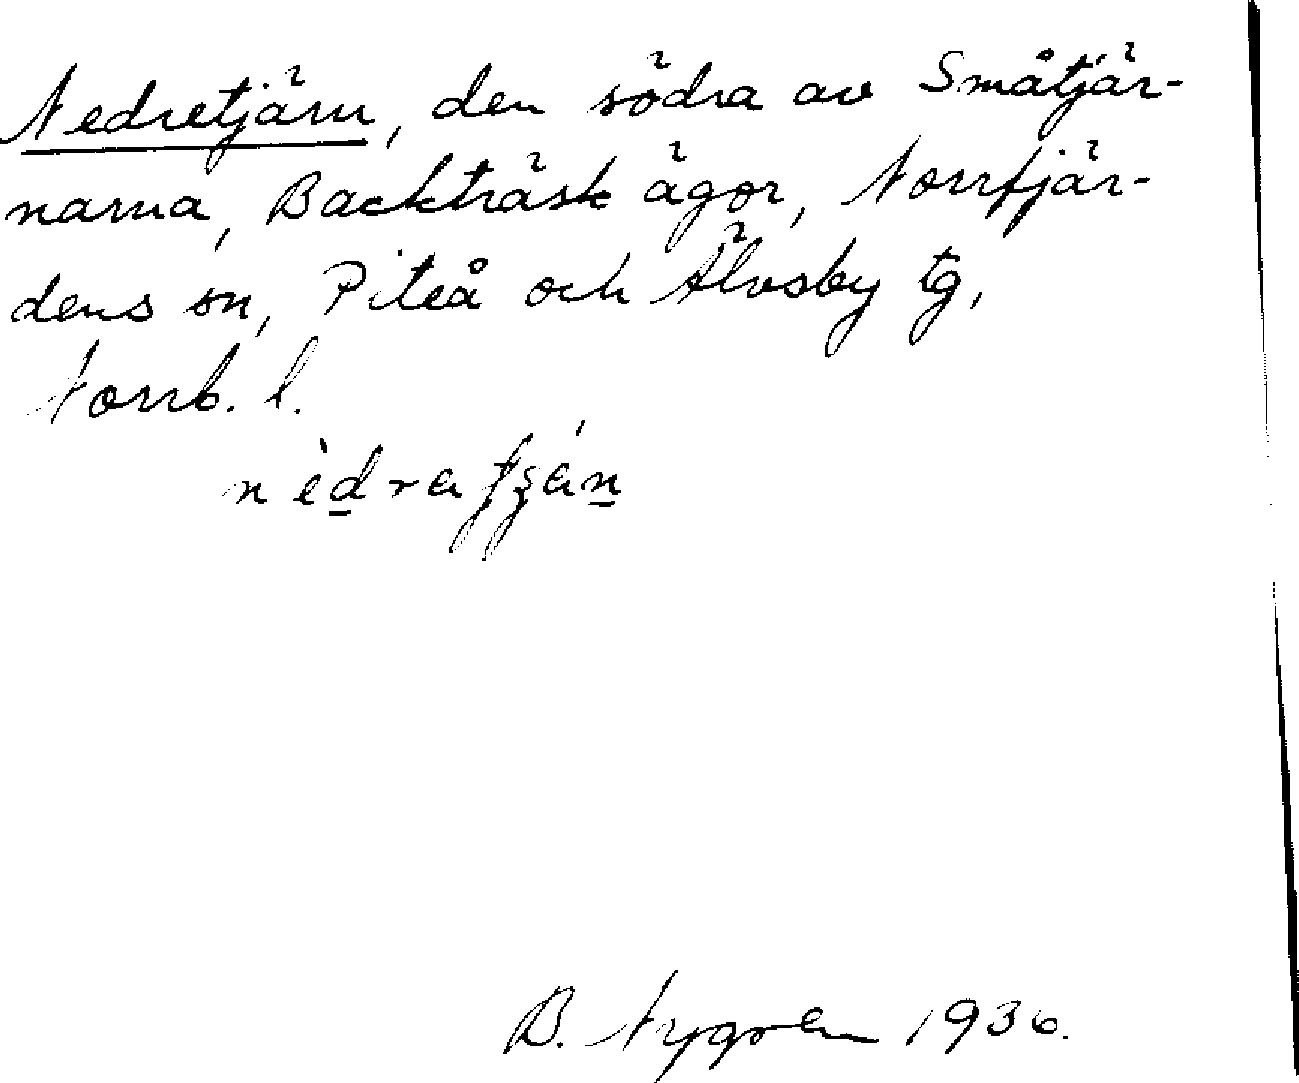 Nedretjärn, den södra av Småtjär-
narna, Backträsk ägor, Norrfjär-
dens sn, Piteå och Älvsby tg,
Norrb. l.
B. Nygren 1936.